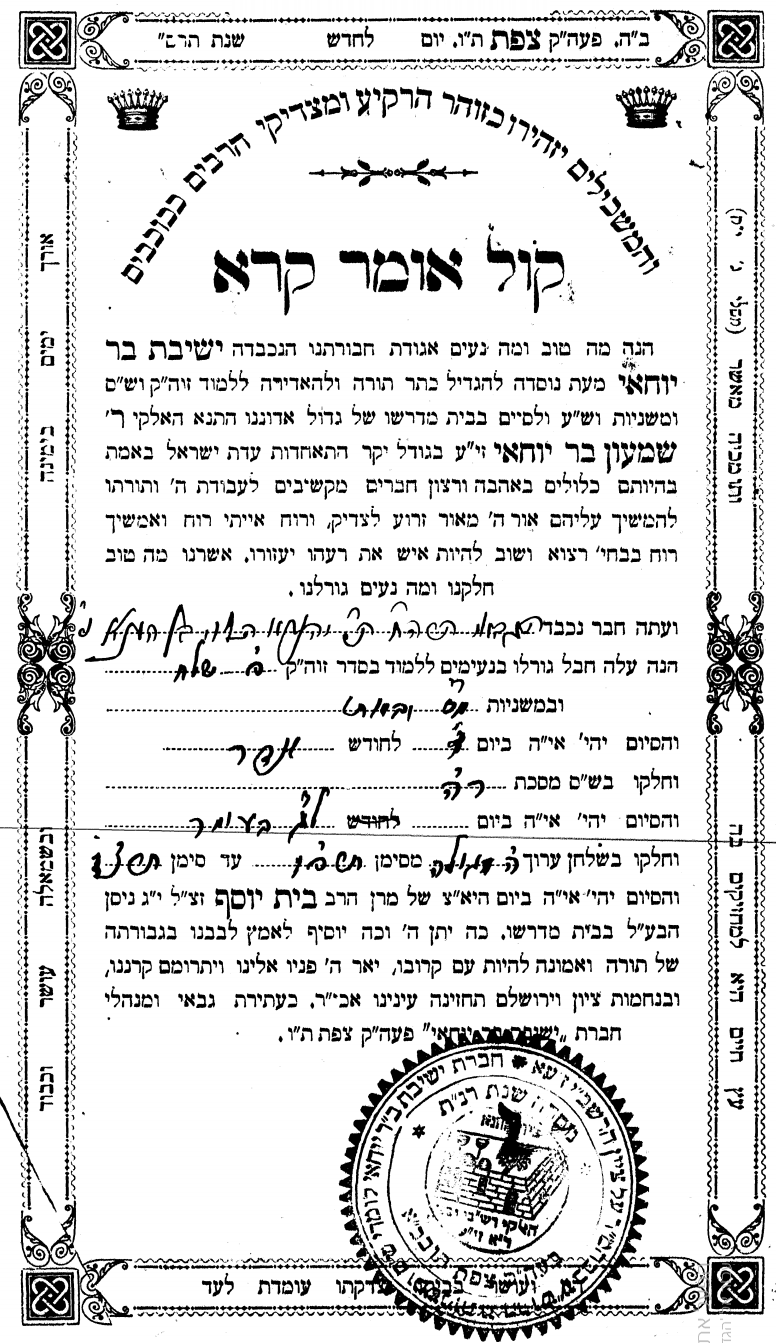 ב"ה. פעה"ק צפת ת"ו. יום לחדש שנת
והמשכילים יזהירו כזוהר הרקיע ומצדיקי הרבים ככוכבים
קול אומר קרא
הנה מה טוב ומה נעים אגודת חבורתנו הנכבדה ישיבת בר
יוחאי מעת נוסדה להגדיל כתר תורה ולהאדירה ללמוד זוה"ק וש"ס
ומשניות וש"ע ולסיים בבית מדרשו של גדול אדוננו התנא האלקי ר'
שמעון בר יוחאי זי"ע בגודל יקר התאחדות עדת ישראל באמת
בהיותם כלולים באהבה ורצון חברים מקשיבים לעבודת ה' ותורתו
להמשיך עליהם אור ה' מאור זרוע לצדיק, ורוח אייתי רוח ואמשיך
רוח בבחי' רצוא ושוב להיות איש את רעהו יעזורו. אשרנו מה טוב
חלקנו ומה נעים גורלנו.
ועתה חבר נכבד
הנה עלה חבל גורלו בנעימים ללמוד בסדר זוה"ק פ' שלח
ובמשניות
והסיום יהי' אי"ה ביום לחודש אדר
וחלקו בש"ס מסכת ר"ה
והסיום יהי' אי"ה ביום לחודש ל"ג בעומר
וחלקו בשלחן ערוך מסימן עד סימן
והסיום יהי' אי"ה ביום היא"צ של מרן הרב בית יוסף זצ"ל י"ג ניסן
הבע"ל בבית מדרשו. כה יתן ה' וכה יוסיף לאמץ לבבנו בגבורתה
של תורה ואמונה להיות עם קרובו, יאר ה' פניו אלינו ויתרומם קרננו,
ובנחמות ציון וירושלם תחזינה עינינו אכי"ר. כעתירת גבאי ומנהלי
חברת "ישיבת בר יוחאי" פעה"ק צפת ת"ו.
עץ חיים היא למחזיקים בה ותומכיה מאושר (משלי ג' י"ח)
אורך ימים בימינה ובשמאלה עושר וכבוד
חברת ישיבת
שנת
צפת
צדקתו עומדת לעד